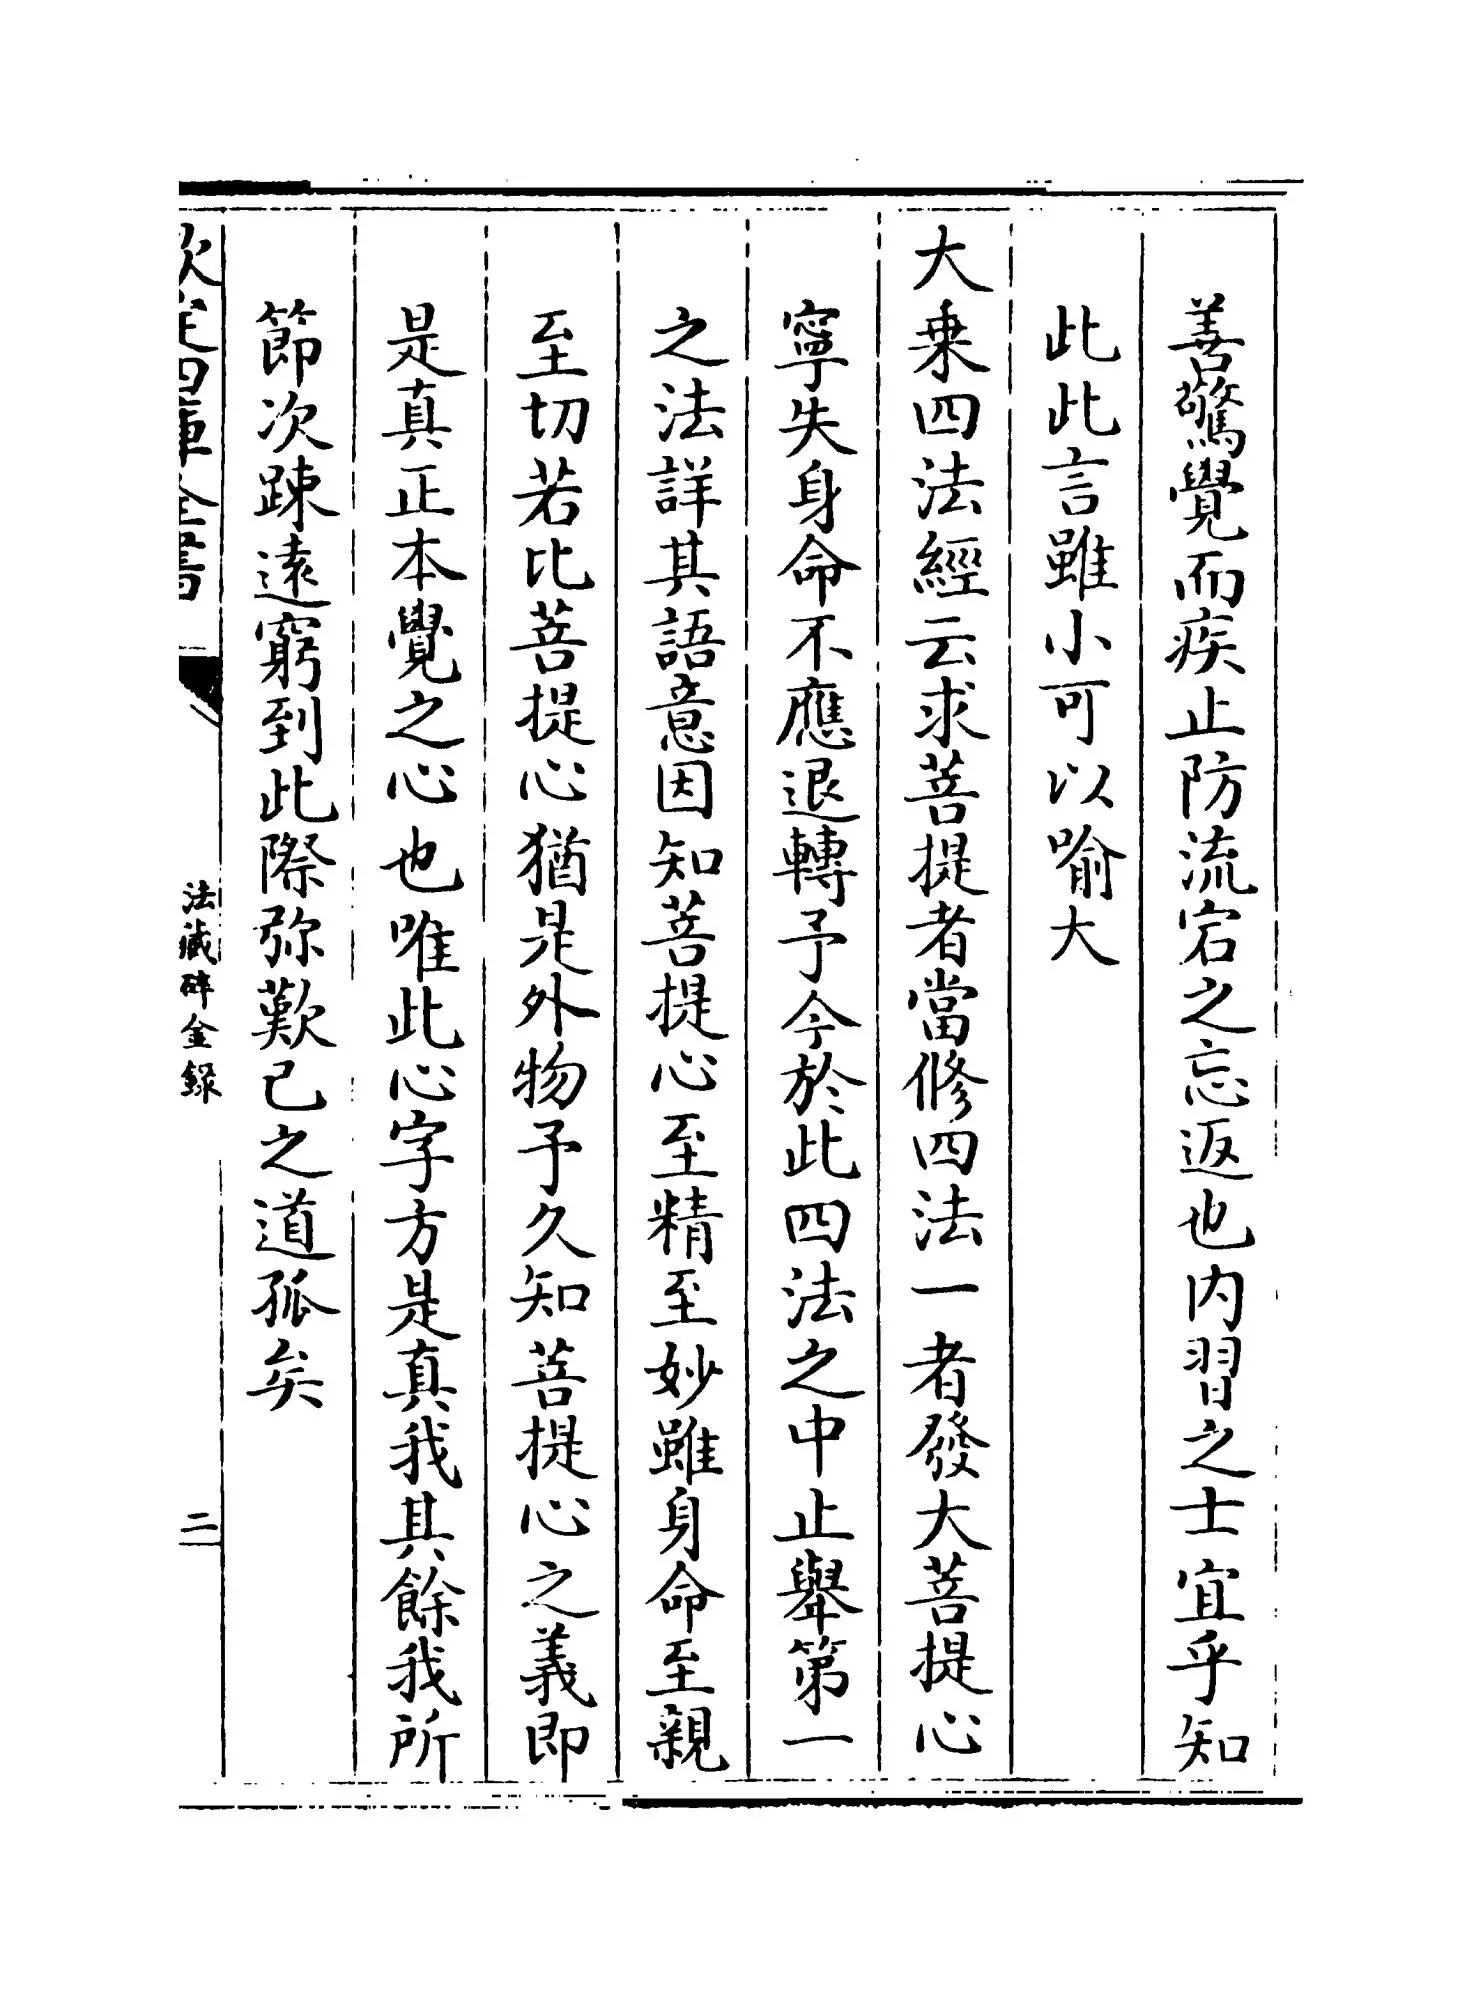 善驚覺而疾止防流宕之忘返也内習之士宜乎知
此此言雖小可以喻大
大乗四法經云求菩提者當修四法一者發大菩提心
寧失身命不應退轉予今於此四法之中止舉第一
之法詳其語意因知菩提心至精至妙雖身命至親
至切若比菩提心猶是外物予久知菩提心之義即
是真正本覺之心也唯此心字方是真我其餘我所
節次踈逺窮到此際弥歎已之道孤矣
欽定四庫全書
法藏碎金録
二